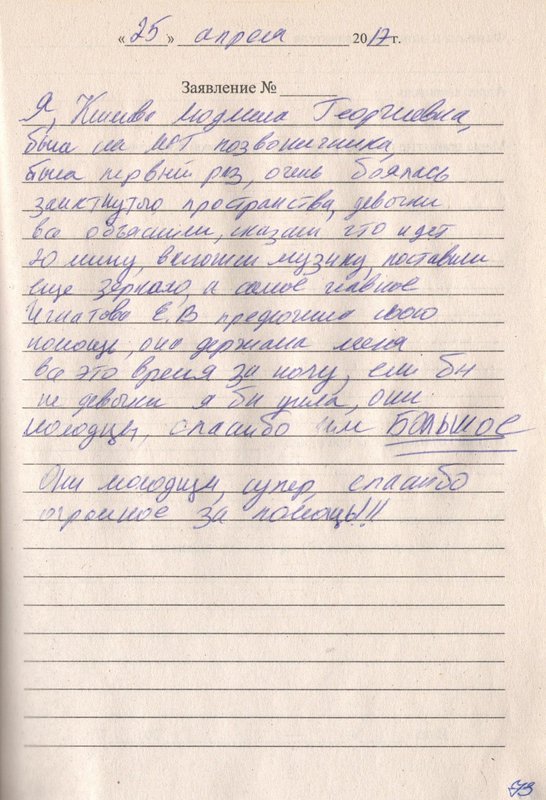 « 25 » апреля 2017 г.
Заявление №
Я, Людмила Георгиевна,
была на МРТ позвоничника,
была первый раз, очень боялась
замкнутого пространства, девочки
все объяснили, сказали что идет
20 мину, включили музыку, поставили
еще зеркало, а самое главное
Игнатова Е.В предложила свою
помощь, она держала меня
все это время за ногу, если бы
не девочки я бы ушла, они
молодцы, спасибо им БОЛЬШОЕ
Они молодцы, супер, спасибо
огромное за помощь!!!
73